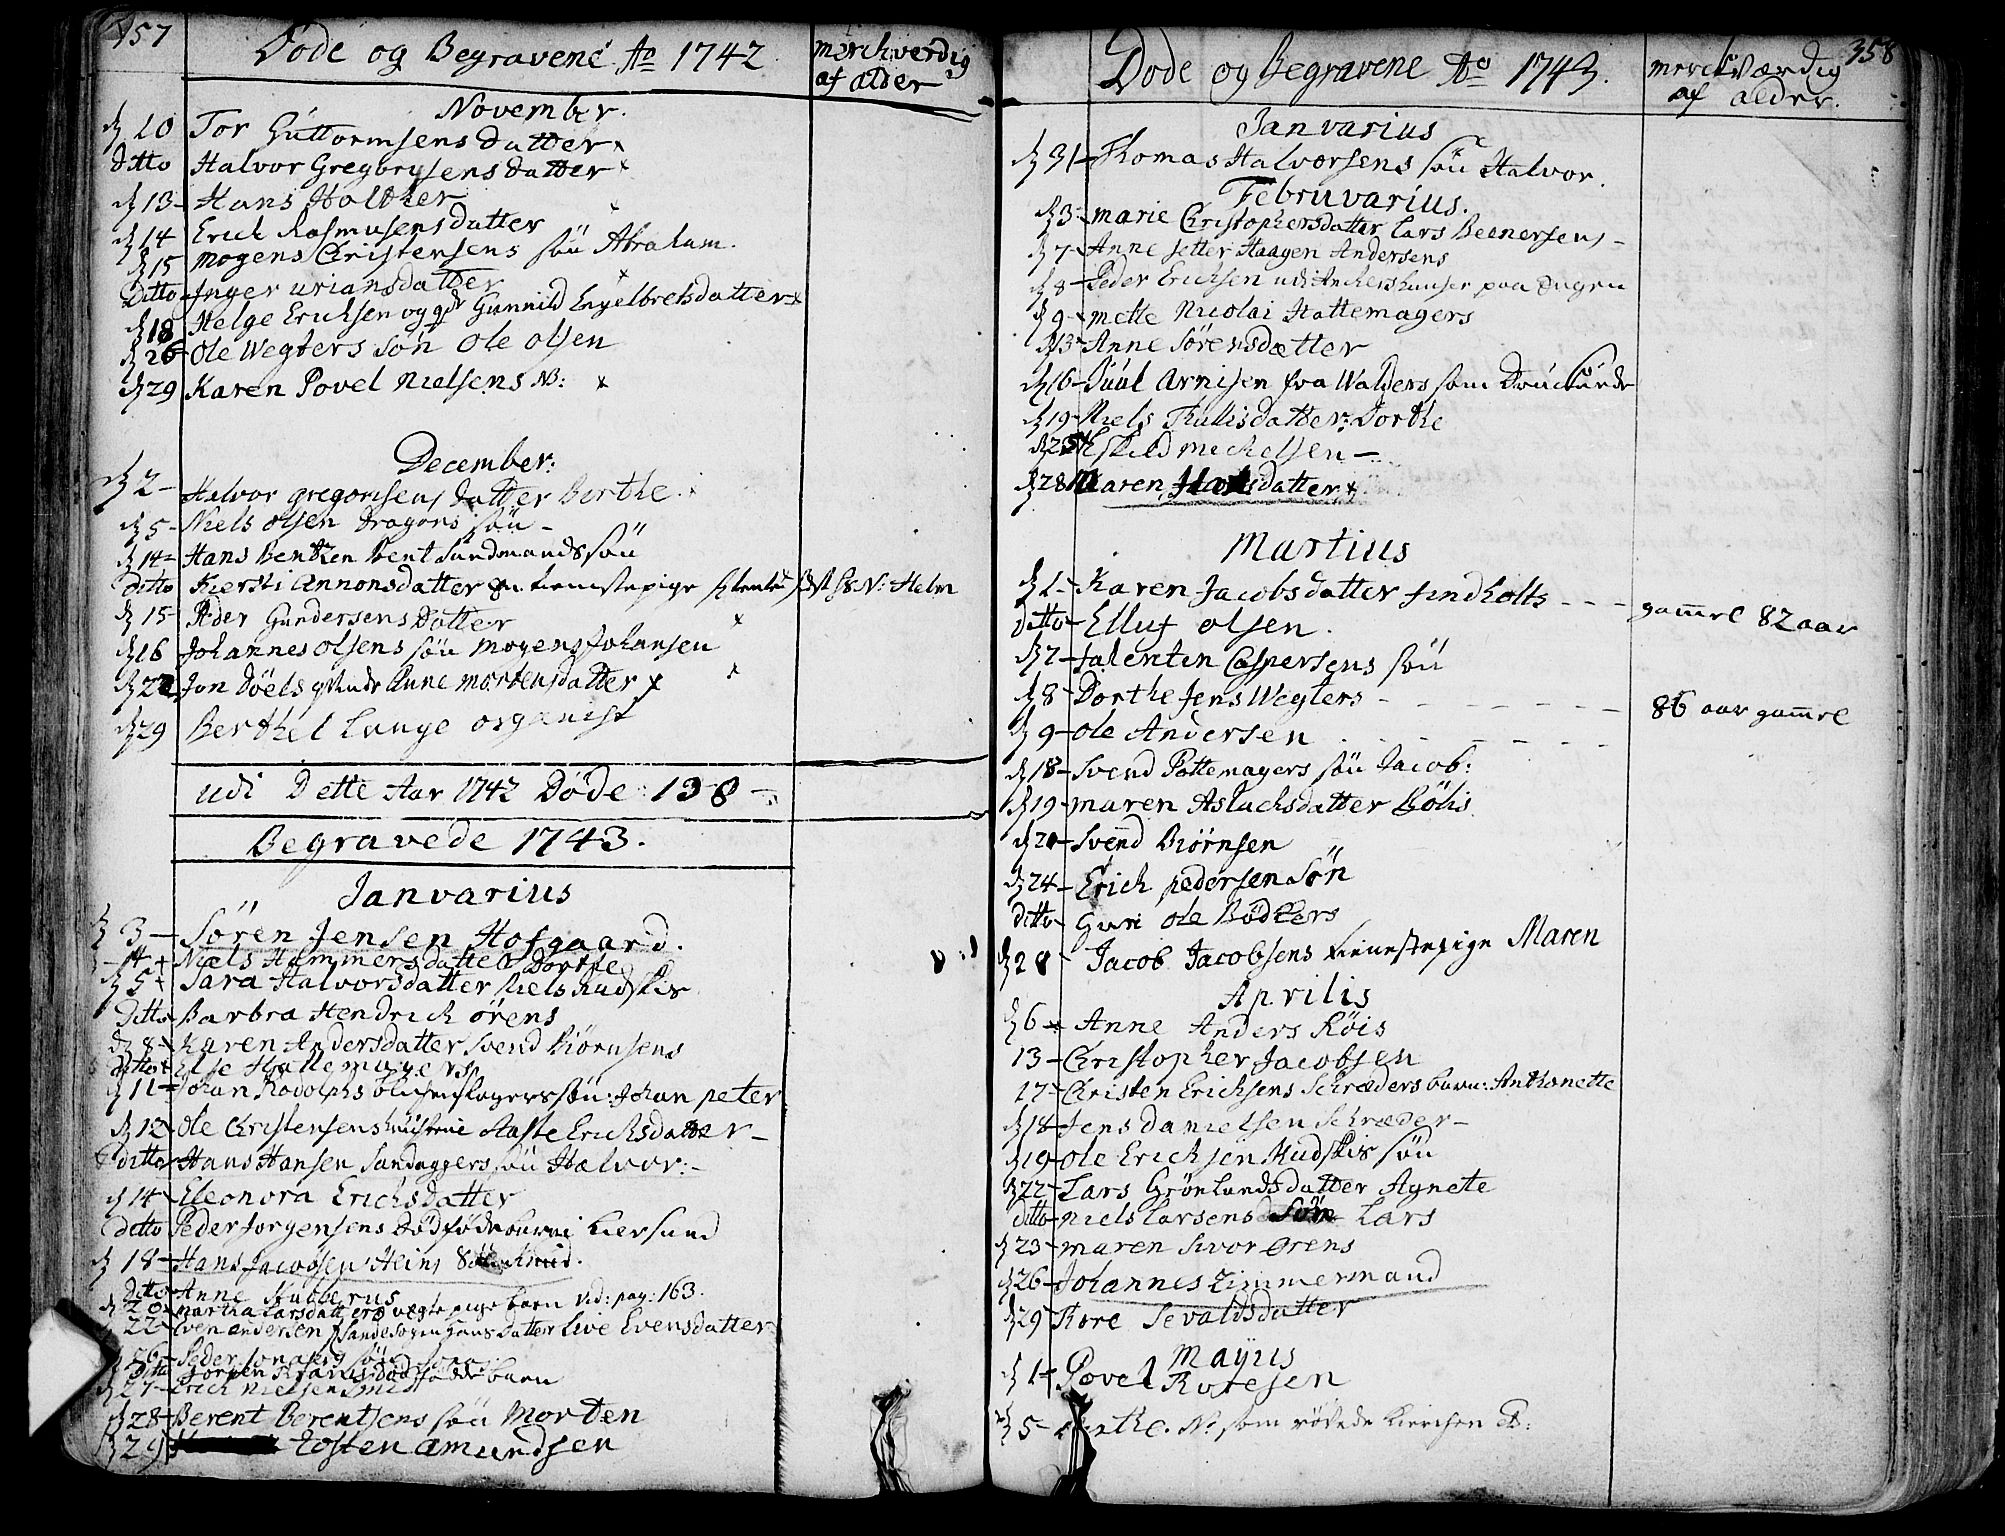 357
Døde og Begravene Ao 1742
merchverdig
af alder
November.
d 10 Tor Guttormsens datter x
Ditto Halvor Gregorysens datter x
d 13 Hans Holther
d 14 Erick Rasmusens datter x
d 15 Mogens Christensens søn Abraham.
Ditto Inger uriansdatter x
d 18 Helge Ericksen og Gunnild Engelbretsdatter x
d 26 Ole Wegters søn Ole olsen
d 29 Karen Povel Nielsens NB: x
December:
d 2 Halvor gregorisens datter Berthe. x
d 5 Niels olsen Dragons søn
d 14 Hans Bentzen Bent Sundmands søn
ditto Kiersti Annonsdatter en tienistepige N: Helm
d 15 Peder Gundersens Datter x
d 16 Johannes olsens søn Mogens Johansen
d 22 Jon Döels Anne mortensdatter x
d 29 Berthel Lange organist
udi Dette Aar 1742 Døde 138
Begravede 1743.
Janvarius
d 3 Søren Jensen Hofgaard.
4 Niels Hammers datter Dorthe
d 5 Sara Halvorsdatter Niels Rudskis
Ditto Barbra Hendrich örens
d 8 Karen Andersdatter Svend Biörnsens
ditto Else Hattemagers
d 11 Johan Rodolphs søn: Johan peter
d 12 Ole Christensens Aaste Ericksdatter
ditto Hans Hansen Sandaggers søn Halvor:
d 14 Eleonora Ericksdatter
ditto Peder Jorgensens dödföde barn i Kiersund
d 18 Hans Jacobsen Heins
ditto Anne Stubberus
d 20 Martha Larsdatters pige barn vid: pag: 163.
22 Even andersen datter Live Evensdatter
26 Peder søn
Ditto Jorgen død føde barn
d 27 Erich Nielsen
d 28 Berent Berentsens søn Morten
d 29 Eosten Amundsen
358
Døde og Begravene Ao 1743.
merckværdig
af alder.
Janvarius
d 31 Thomas Halvorsens søn Halvor.
Februvarius.
d 3 marie Christophersdatter Lars Beenersens
d 7 Anne setter Haagen Andersens
d 8 Peder Ericksen udi paa
d 9 mette Nicolai Hattemagers
d 13 Anne Sörensdætter
d 16 Juul Arnisen fra Walders som
d 19 Niels datter: Dorthe
d 25 Eskild Mechelsen
d 28 Maren datter x
Martius
d 1 Karen Jacobsdatter findholts - - - gamel 82 aar
ditto Elluf olsen.
d 7 Falentin Caspersens søn
d 8 Dorthe Jens Wegters - - - 86 aar gamel
d 9 Ole Andersen
d 18 Svend Pottemagers søn Jacob:
d 19 maren Aslachsdatter Röhis
d 20 Svend Biörnsen
d 24 Erich pedersen Søn
ditto Guri Ole Bödkers
d 28 Jacob Jacobsens tienestepige Maren
Aprilis
d 6 Anne Anders Röis
13 Christopher Jacobsen
17 Christen Ericksens Schræders barn: Anthonette
d 18 Jens danielsen Schræder
d 19 Ole Ericksen Rudskis søn
d 22 Lars Grönlunds datter Agnete
ditto Niels Larsens Søn Lars
d 23 maren Sivor Örens
d 26 Johannes Zimmermand
d 29 Kore Sevaldsdatter
Mayus
d 1 Povel
d 5 som kiercken